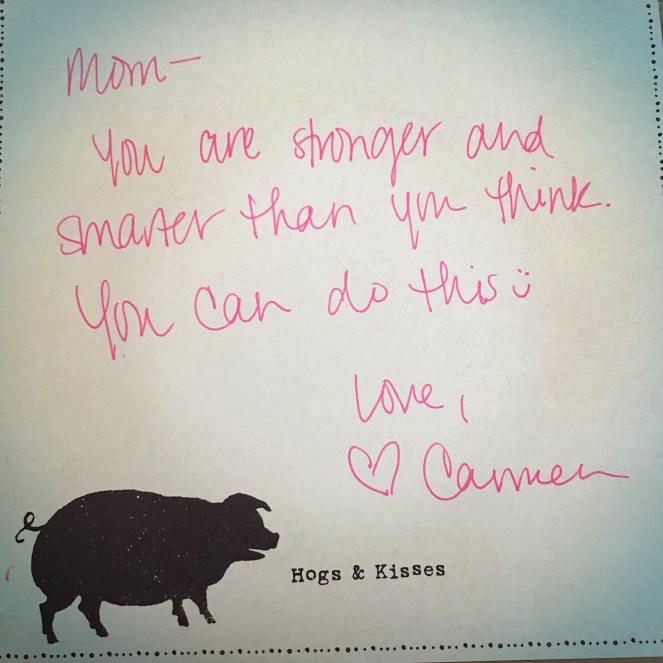 Mom—
You are stronger and
smarter than you think.
You can do this :)
Love,
♡ Carmen
Hogs & Kisses